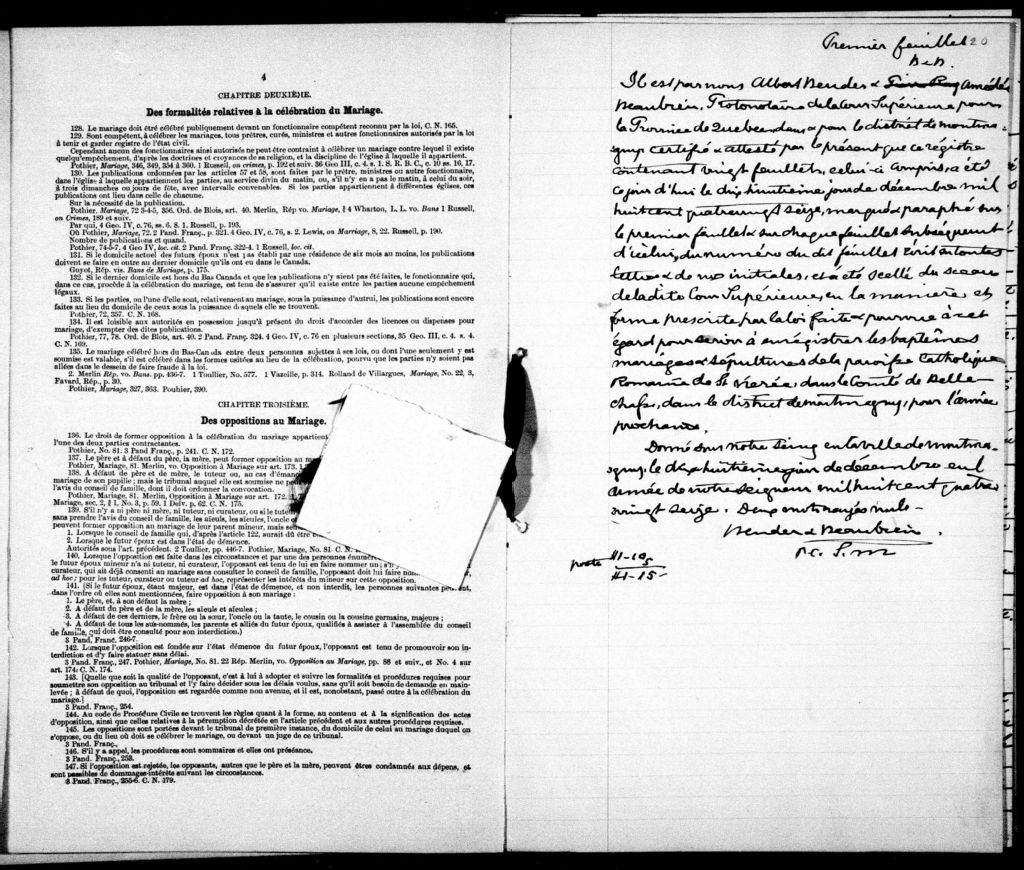 4
CHAPITRE DEUXIÈME.
Des formalités relatives à la célébration du Mariage.
128. Le mariage doit être célébré publiquement devant un fonctionnaire compétent reconnu par la loi, C. N. 165.
129. Sont compétents, à célébrer les mariages, tous prêtres, curés, ministres et autres fonctionnaires autorisés par la loi
à tenir et garder registre de l'état civil.
Cependant aucun des fonctionnaires ainsi autorisés ne peut être contraint à célébrer un mariage contre lequel il existe
quelqu'empêchement, d'après les doctrines et croyances de sa religion, et la discipline de l'église à laquelle il appartient.
Pothier, Mariage, 346, 349, 354 à 360. 1 Russell, on crimes, p. 192 et suiv. 36 Geo III, c. 4. s. 1. S. R. B. C., c. 10 ss. 16, 17.
130. Les publications ordonnées par les articles 57 et 58, sont faites par le prêtre, ministres ou autre fonctionnaire,
dans l'église à laquelle appartiennent les parties, au service divin du matin, ou, s'il n'y en a pas le matin, à celui du soir,
à trois dimanches ou jours de fête, avec intervalle convenables. Si les parties appartiennent à différentes églises, ces
publications ont lieu dans celle de chacune.
Sur la nécessité de la publication.
Pothier. Mariage, 72 3-4-5, 356. Ord. de Blois, art. 40. Merlin, Rép vo. Mariage, § 4 Wharton, L. L. vo. Bans 1 Russell,
on Crimes, 189 et suiv.
Par qui, 4 Geo. IV, c. 76, ss. 6. 8. 1. Russell, p. 193.
Où Pothier, Mariage, 72. 2 Pand. Franç. p. 321. 4 Geo. IV, c. 76, s. 2. Lewis, on Marriage, 8, 22. Russell, p. 190.
Nombre de publications et quand.
Pothier, 74-5-7. 4 Geo IV, loc. cit. 2 Pand. Franç. 322-4. 1 Russell, loc. cit.
131. Si le domicile actuel des futurs époux n'est pas établi par une résidence de six mois au moins, les publications
doivent se faire en outre au dernier domicile qu'ils ont eu dans le Canada.
Guyot, Rép. vis. Bans de Mariage, p. 175.
132. Si le dernier domicile est hors du Bas Canada et que les publications n'y sient pas été faites, le fonctionnaire qui,
dans ce cas, procède à la célébration du mariage, est tenu de s'assurer qu'il existe entre les parties aucune empêchement
légaux.
133. Si les parties, ou l'une d'elle sont, relativement au mariage, sous la puissance d'autrui, les publications sont encore
faites au lieu du domicile de ceux sous la puissance desquels elle se trouvent.
Pothier, 72, 357. C. N. 168.
134. Il est loisible aux autorités en possession jusqu'à présent du droit d'accorder des licences ou dispenses pour
mariage, d'exempter des dites publications.
Pothier, 77, 78. Ord. de Blois, art. 40. 2 Pand Franç. 324. 4 Geo IV, c. 76 en plusieurs sections, 35 Geo. III, c. 4. s. 4.
C. N. 169.
135. Le mariage célébré hors du Bas-Canada entre deux personnes sujettes à ses lois, ou dont l'une seulement y est
soumise est valable, s'il est célébré dans les formes usitées au lieu de la célébration, pourvu que les parties n'y soient pas
allées dans le dessein de faire fraude à la loi.
2. Merlin Rép. vo. Bans. pp. 436-7. 1 Toullier, No. 577. 1 Vazeille, p. 314. Rolland de Villargues, Mariage, No. 22, 3,
Favard, Rép., p. 30.
Pothier, Mariage, 327, 363. Pouhier, 390.
CHAPITRE TROISIÈME.
Des oppositions au Mariage.
136. Le droit de former opposition à la célébration du mariage appartient
l'une des deux parties contractantes.
Pothier, No. 81. 3 Pand Franç., p. 241. C. N. 172.
137. Le père et à défaut du père, la mère, peut former opposition au m
Pothier, Mariage, 81. Merlin, vo. Opposition à Mariage sur art. 173. 1
138. A défaut de père et de mère, le tuteur ou, au cas d'émanc
mariage de son pupille; mais le tribunal auquel elle est soumise ne peut
l'avis du conseil de famille, dont il doit ordonner la convocation.
Pothier, Mariage, 81. Merlin, Opposition à Mariage sur art. 172.
Mariage, sec. 2, § 1, No. 3, p. 59. 1 Delv. p. 62. C. N. 175.
139. S'il n'y a ni père ni mère, ni tuteur, ni curateur, ou si le tuteur
sans prendre l'avis du conseil de famille, les aïeuls, les aïeules, l'oncle
peuvent former opposition au mariage de leur parent mineur, mais se
1. Lorsque le conseil de famille qui, d'après l'article 122, aurait dû être
2. Lorsque le futur époux est dans l'état de démence.
Autorités sous l'art. précédent. 2 Toullier, pp. 446-7. Pothier, Mariage, No. 81. C. N.
140. Lorsque l'opposition est faite dans les circonstances et par une des personnes énumér
le futur époux mineur n'a ni tuteur, ni curateur, l'opposant est tenu de lui en faire nommer un; s'
curateur, qui ait déjà consenti au mariage sans consulter le conseil de famille, l'opposant doit lui faire nom
ad hoc; pour les tuteur, curateur ou tuteur ad hoc, représenter les intérêts du mineur sur cette opposition.
141. (Si le futur époux, étant majeur, est dans l'état de démence, et non interdit, les personnes suivantes peuvent,
dans l'ordre où elles sont mentionnées, faire opposition à son mariage:
1. Le père, et, à son défaut la mère;
2. A défaut du père et de la mère, les aïeuls et aïeules;
3. A défaut de ces derniers, le frère ou la sœur, l'oncle ou la tante, le cousin ou la cousine germains, majeurs;
4. A défaut de tous les sus-nommés, les parents et alliés du futur époux, qualifiés à assister à l'assemblée du conseil
de famille, qui doit être consulté pour son interdiction.)
3 Pand. Franç. 246-7.
142. Lorsque l'opposition est fondée sur l'état démence du futur époux, l'opposant est tenu de promouvoir son in-
terdiction et d'y faire statuer sans délai.
3 Pand. Franç., 247. Pothier, Mariage, No. 81. 22 Rép. Merlin, vo. Opposition au Mariage, pp. 88 et suiv., et No. 4 sur
art. 174. C. N. 174.
143. [Quelle que soit la qualité de l'opposant, c'est à lui à adopter et suivre les formalités et procédures requises pour
soumettre son opposition au tribunal et l'y faire décider sous les délais voulus, sans qu'il soit besoin de demande en main-
levée; à défaut de quoi, l'opposition est regardée comme non avenue, et il est, nonobstant, passé outre à la célébration du
mariage.]
3 Pand. Franç., 254.
144. Au code de Procédure Civile se trouvent les règles quant à la forme, au contenu et à la signification des actes
d'opposition, ainsi que celles relatives à la péremption décrétée en l'article précédent et aux autres procédures requises.
145. Les oppositions sont portées devant le tribunal de première instance, du domicile de celui au mariage duquel on
s'oppose, ou du lieu où doit se célébrer le mariage, ou devant un juge de ce tribunal.
3 Pand. Franç.,
146. S'il y a appel, les procédures sont sommaires et elles ont préséance.
3 Pand. Franç., 258.
147. Si l'opposition est rejetée, les opposants, autres que le père et la mère, peuvent être condamnés aux dépens, et
sont passibles de dommages-intérêts suivant les circonstances.
3 Pand. Franç., 255-6. C. N. 179.
Premier feuillet 20
B & B.
Il est par nous Albert Bender & Amédée
Beaubien, Protonotaire de la Cour Supérieure pour
la Province de Québec dans & pour le district de Montma-
gny certifié & attesté par le présent que ce registre
contenant vingt feuillets, celui-ci compris, a été
ce jour d'hui le dix huitième jour de décembre mil
huit cent quatre vingt seize, marqué & paraphé sur
le premier feuillet & sur chaque feuillet subséquent
d'icelui, du numéro du dit feuillet écrit en toutes
lettres & de nos initiales, et a été scellé du sceau
de la dite Cour Supérieure, en la manière et
forme prescrite par la loi faite & pourvue à cet
égard pour servir à enregistrer les baptêmes
mariages & sépultures de la paroisse Catholique
Romaine de St Nérée, dans le Comté de Belle-
chasse, dans le district de Montmagny, pour l'année
prochaine.
Donné sous notre seing en la ville de Montma-
gny, le dix huitième jour de décembre en l'
année de notre Seigneur mil huit cent quatre
vingt seize. Deux mots rayés nuls.
Bender & Beaubien
P. C. S. M
poste #1-10
#1-15-